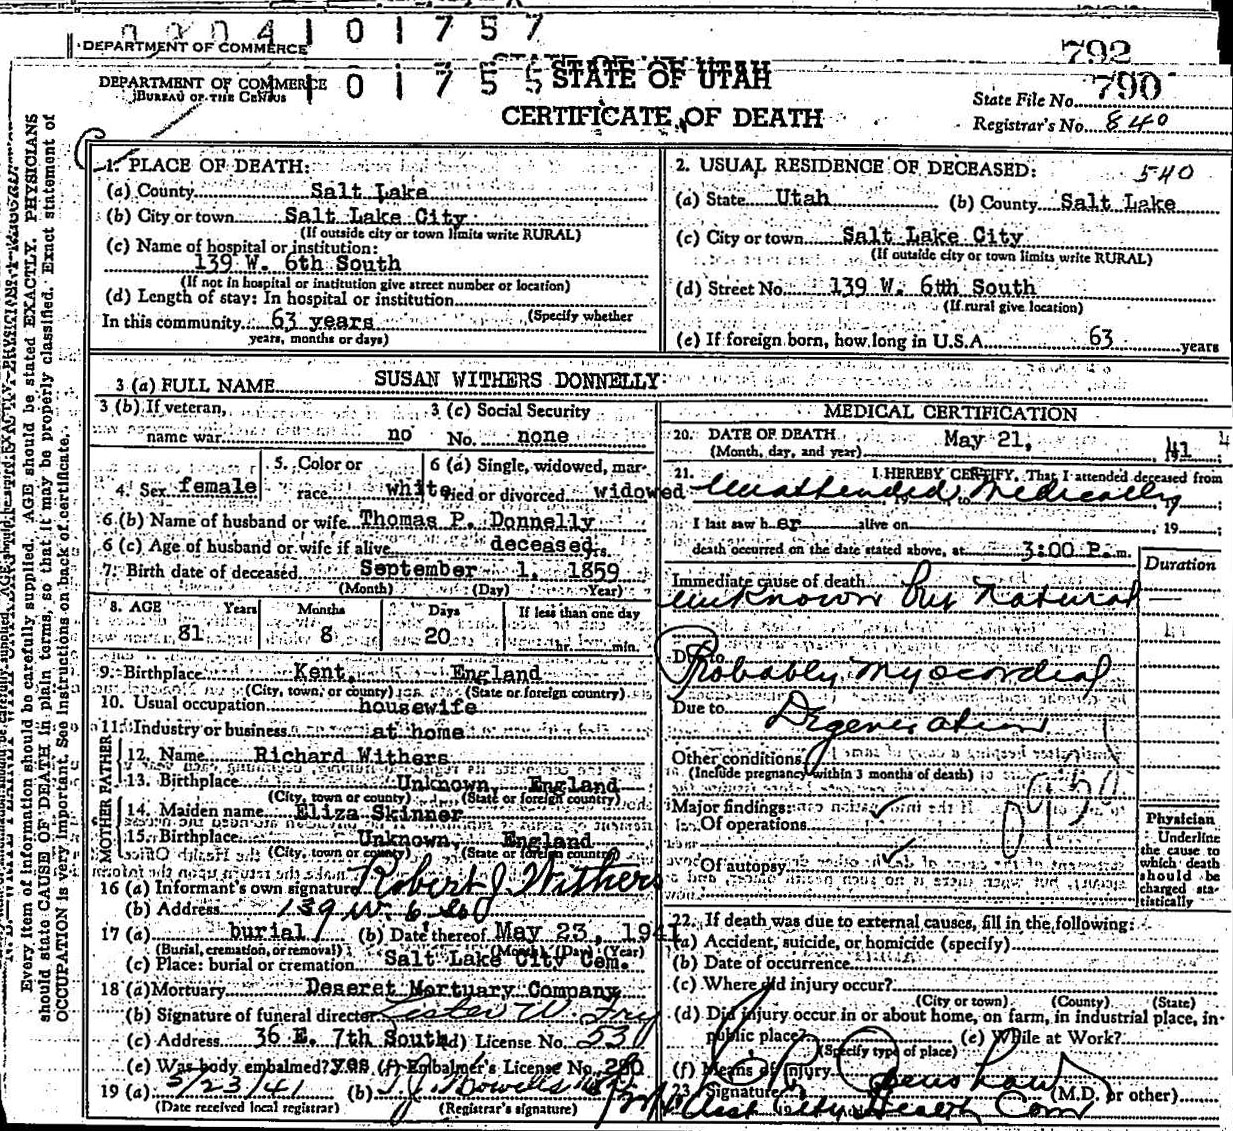 0004101757
DEPARTMENT OF COMMERCE
792
DEPARTMENT OF COMMERCE
BUREAU OF THE CENSUS
101755
STATE OF UTAH
CERTIFICATE OF DEATH
790
State File No.
Registrar's No. 840
Every item of information should be carefully supplied. AGE should be stated EXACTLY. PHYSICIANS
should state CAUSE OF DEATH in plain terms, so that it may be properly classified. Exact statement of
OCCUPATION is very important. See instructions on back of certificate.
1. PLACE OF DEATH:
(a) County Salt Lake
(b) City or town Salt Lake City
(If outside city or town limits write RURAL)
(c) Name of hospital or institution:
139 W. 6th South
(If not in hospital or institution give street number or location)
(d) Length of stay: In hospital or institution
(Specify whether
In this community 63 years
years, months or days)
2. USUAL RESIDENCE OF DECEASED: 540
(a) State Utah (b) County Salt Lake
(c) City or town Salt Lake City
(If outside city or town limits write RURAL)
(d) Street No. 139 W. 6th South
(If rural give location)
(e) If foreign born, how long in U.S.A. 63 years
3 (a) FULL NAME SUSAN WITHERS DONNELLY
3 (b) If veteran,
name war no
3 (c) Social Security
No. none
4. Sex female
5. Color or
race white
6 (a) Single, widowed, mar-
ried or divorced widowed
6 (b) Name of husband or wife Thomas P. Donnelly
6 (c) Age of husband or wife if alive deceased yrs.
7. Birth date of deceased September 1, 1859
(Month) (Day) (Year)
8. AGE Years Months Days If less than one day
81 8 20 hr. min.
9. Birthplace Kent, England
(City, town, or county) (State or foreign country)
10. Usual occupation housewife
11. Industry or business at home
FATHER
12. Name Richard Withers
13. Birthplace Unknown, England
(City, town or county) (State or foreign country)
MOTHER
14. Maiden name Eliza Skinner
15. Birthplace Unknown, England
(City, town or county) (State or foreign country)
16 (a) Informant's own signature Robert J Withers
(b) Address 139 W. 6 So
17 (a) burial (b) Date thereof May 23, 1941
(Burial, cremation, or removal) (Month) (Day) (Year)
(c) Place: burial or cremation Salt Lake City Cem.
18 (a) Mortuary Deseret Mortuary Company
(b) Signature of funeral director Lester W. Fry
(c) Address 36 E. 7th South (d) License No. 530
(e) Was body embalmed? yes (f) Embalmer's License No. 280
19 (a) 5/23/41 (b) T.J. Howells
(Date received local registrar) (Registrar's signature)
MEDICAL CERTIFICATION
20. DATE OF DEATH May 21, 41
(Month, day, and year)
21. I HEREBY CERTIFY, That I attended deceased from
Unattended Medically
I last saw her alive on , 19 ;
death occurred on the date stated above, at 3:00 P. m.
Duration
Immediate cause of death
unknown but Natural
Due to
Probably Myocordial
Due to
Degeneration
Other conditions
(Include pregnancy within 3 months of death)
Major findings:
Of operations
Of autopsy
Physician
Underline
the cause to
which death
should be
charged sta-
tistically
22. If death was due to external causes, fill in the following:
(a) Accident, suicide, or homicide (specify)
(b) Date of occurrence
(c) Where did injury occur?
(City or town) (County) (State)
(d) Did injury occur in or about home, on farm, in industrial place, in
public place? (e) While at Work?
(Specify type of place)
(f) Means of injury
23. Signature (M.D. or other)
City Health Com